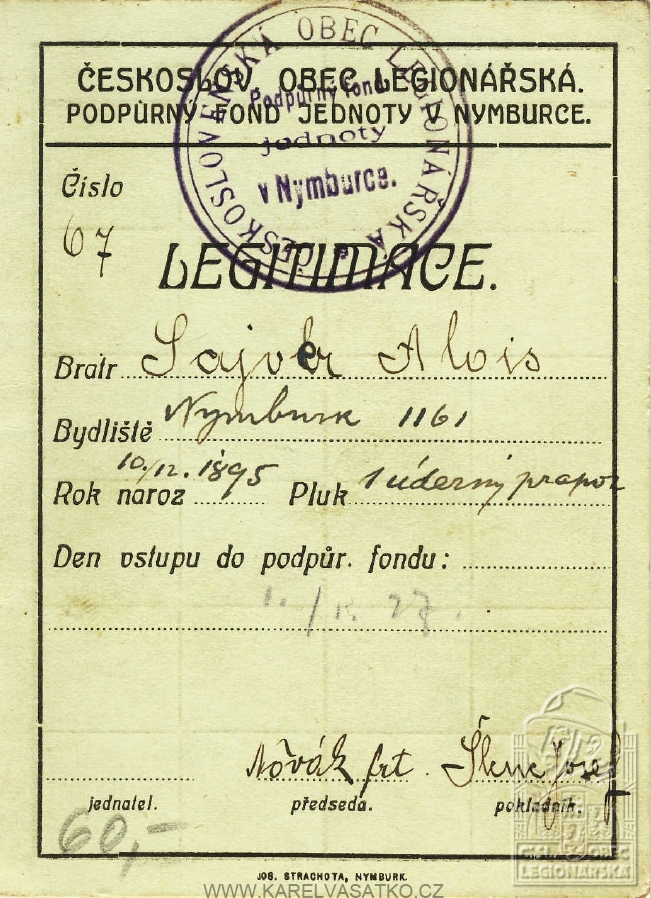 ČESKOSLOV. OBEC LEGIONÁŘSKÁ.
PODPŮRNÝ FOND JEDNOTY V NYMBURCE.
ČESKOSLOVENSKÁ OBEC LEGIONÁŘSKÁ
Podpůrný fond
jednoty
v Nymburce.
Číslo
67
LEGITIMACE.
Bratr Sajver Alois
Bydliště Nymburk 1161
Rok naroz 10./12. 1895 Pluk 1 úderný prapor
Den vstupu do podpůr. fondu:
Novák frt. Šlenc Josef
jednatel. předseda. pokladník.
60,-
JOS. STRACHOTA, NYMBURK.
WWW.KARELVASATKO.CZ
ČSL. OBEC
LEGIONÁŘSKÁ